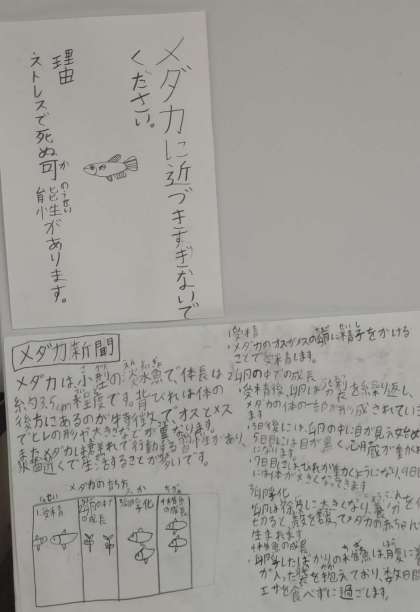 メダカに近づきすぎないで
ください。
理由
ストレスで死ぬ可能性があります。
か
のうせい
メダカ新聞
メダカは、小型の淡水魚で、体長は
約3.5cm程度です。背びれは体の
後方にあるのが特徴で、オスとメス
でヒレの形や大きさなどが異なります。
またメダカは群れで行動する習性があり、
水面近くで生活することが多いです。
メダカの育ち方
1受精
2卵の中での成長
3ふ化
4稚魚の成長
1受精
・メダカのオスがメスの卵に精子をかける
ことで受精します。
2卵の中での成長
・受精後、卵は分裂を繰り返し、
メダカの体の一部が形成されていき
ます
・3日後には、
5日目には目が黒く、心臓が動
になります。
・7日目にはむなびれが動くようになり、9日目
には体が大きくなってきます
3ふ化
卵は徐々に大きくなり、
メダカの赤ち
生まれます
4稚魚の成長
・ふ化したばかりの稚魚は、腹に養分
が入った袋を抱えており、数日間
エサを食べずに過ごします。